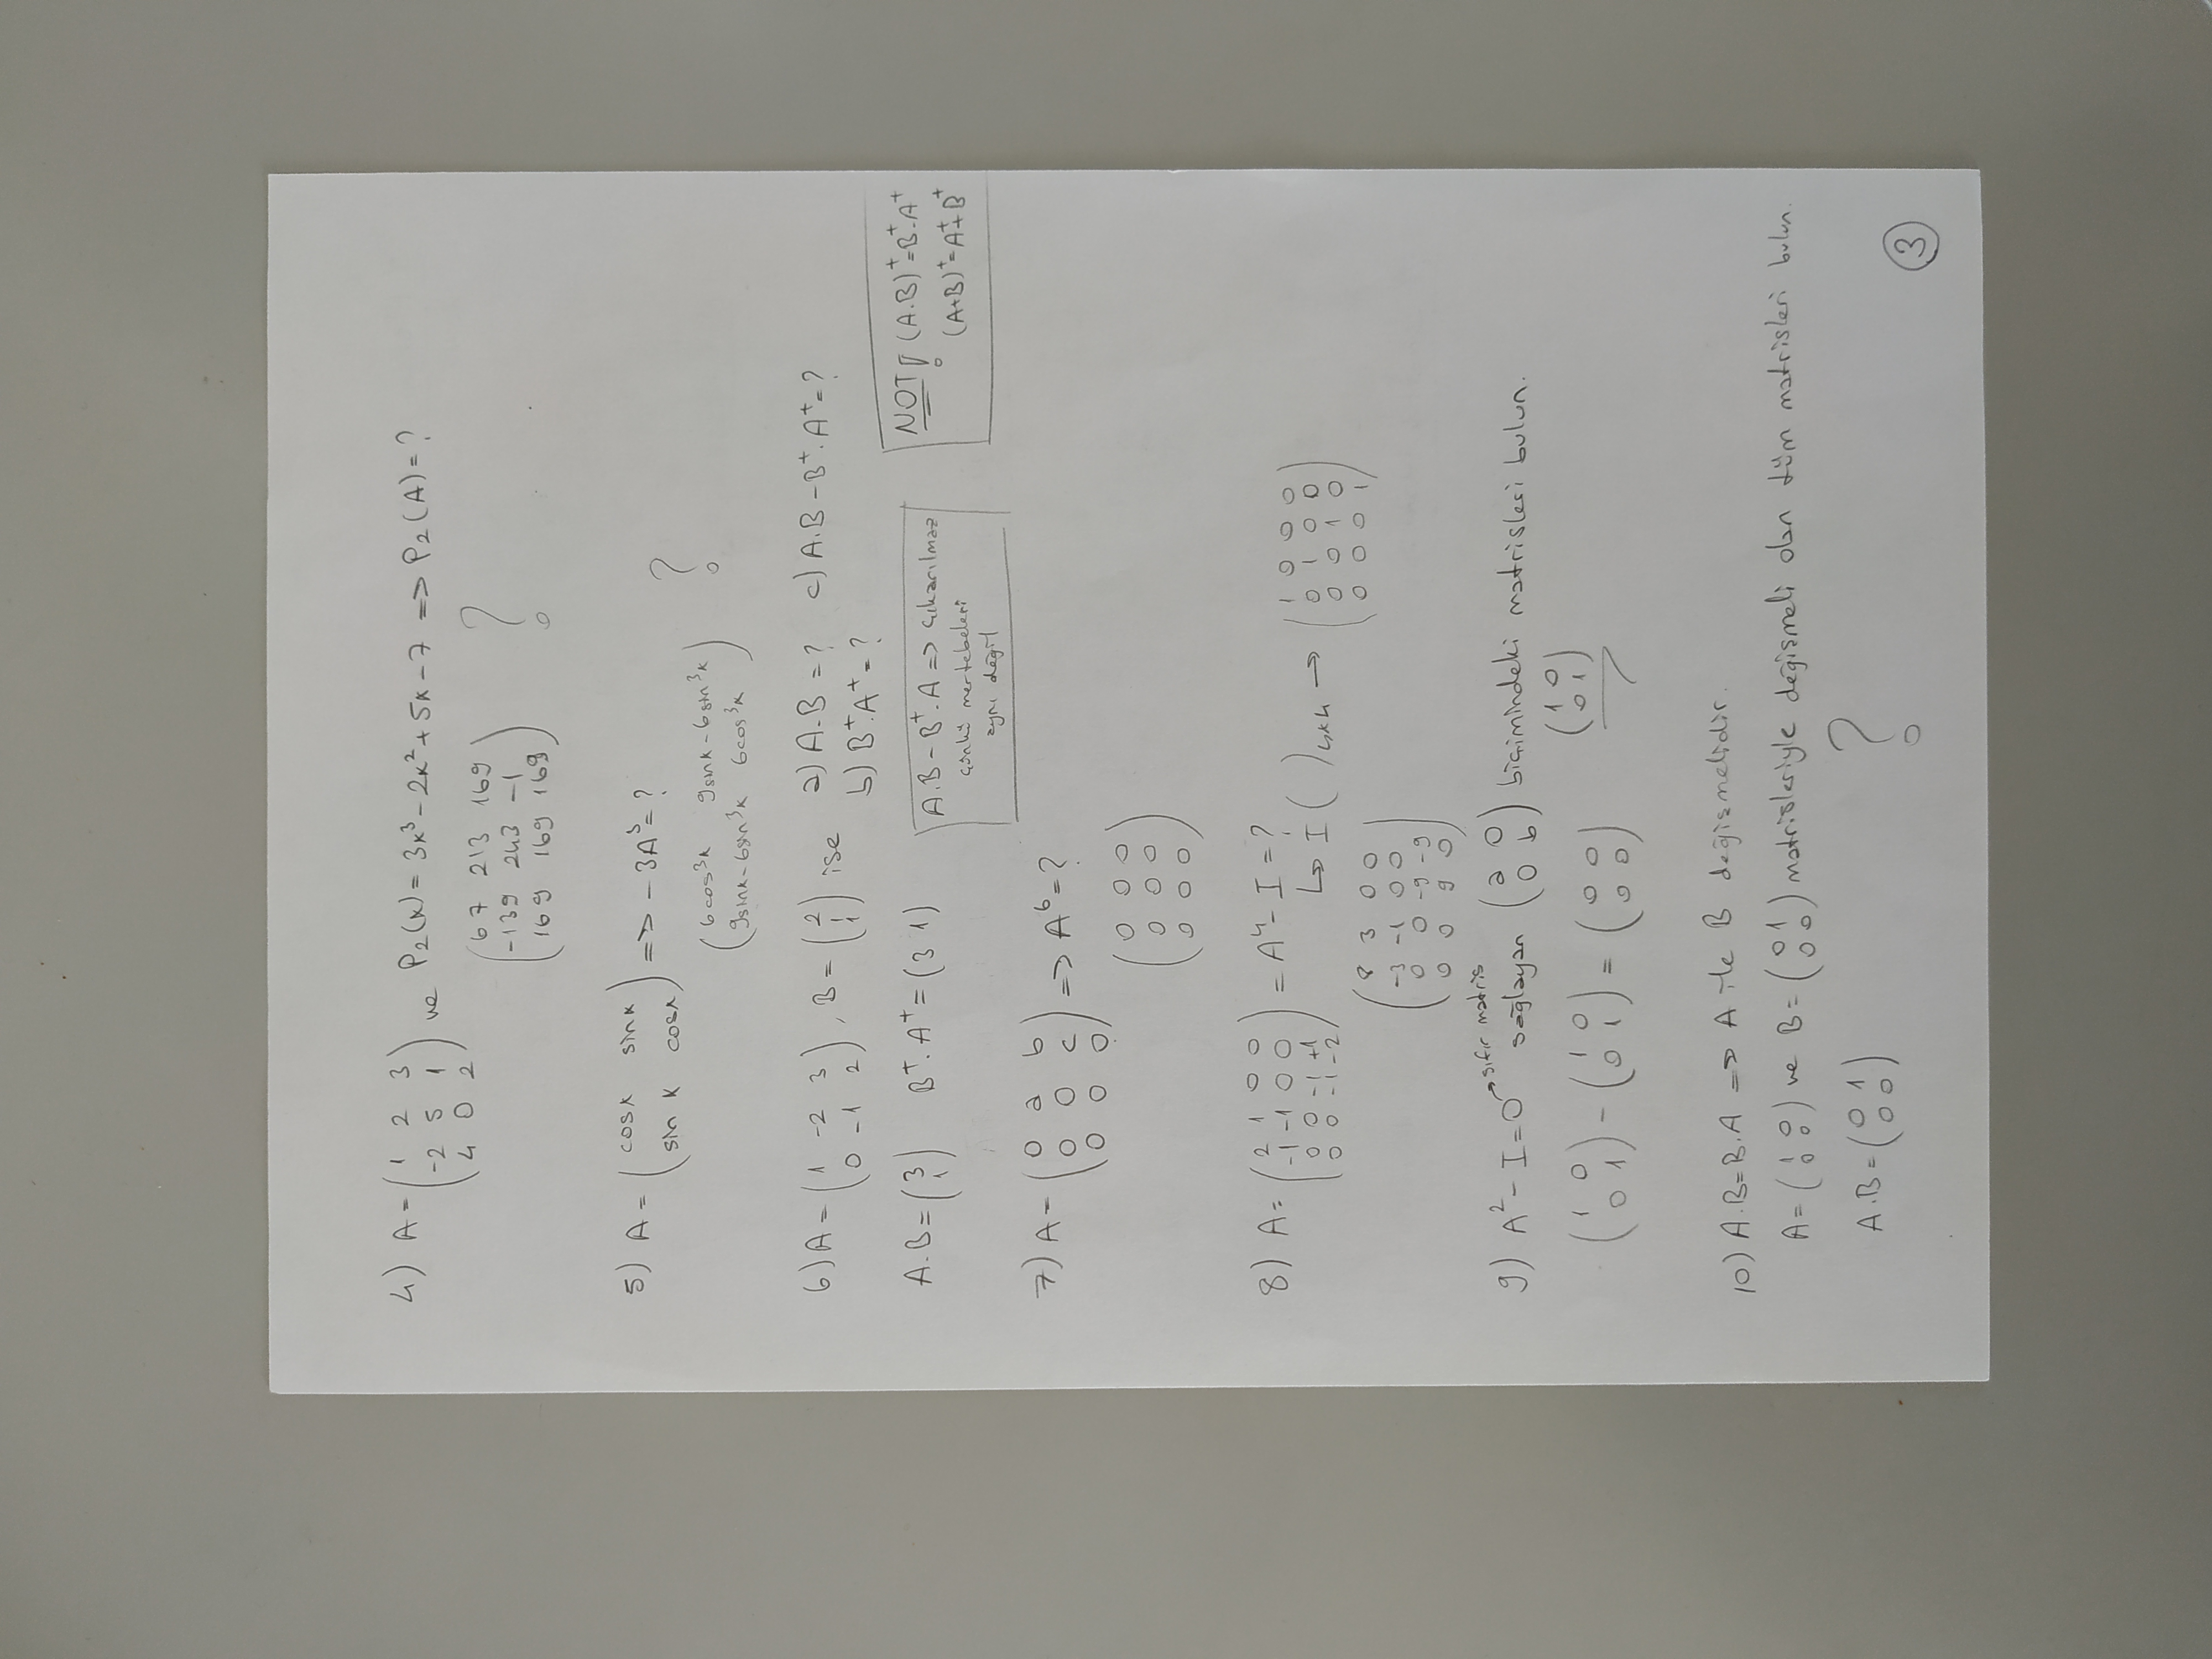 4) A = ( 1 2 3 ve P₂(x) = 3x³ - 2x² + 5x - 7 => P₂(A) = ?
-2 5 1
4 0 2 )
( 67 213 169
-139 243 -1
169 169 169 ) ?
5) A = ( cosx sinx
sin x cosx ) => -3A³ = ?
( 6cos³x 9sinx - 6sin³x
9sinx - 6sin³x 6cos³x ) ?
6) A = ( 1 -2 3
0 -1 2 ) , B = ( 2
1
1 ) ise a) A.B = ? c) A.B - B⁺.A⁺ = ?
b) B⁺.A⁺ = ?
A.B = ( 3
1 ) B⁺.A⁺ = (3 1)
A.B - B⁺.A => çıkarılmaz
çünkü mertebeleri
aynı değil
NOT! (A.B)⁺ = B⁺.A⁺
(A+B)⁺ = A⁺ + B⁺
7) A = ( 0 a b
0 0 c
0 0 0 ) => A⁶ = ?
( 0 0 0
0 0 0
0 0 0 )
8) A = ( 2 1 0 0
-1 -1 0 0
0 0 -1 +1
0 0 -1 -2 ) = A⁴ - I = ?
↳ I ( )₄ₓ₄ → ( 1 0 0 0
0 1 0 0
0 0 1 0
0 0 0 1 )
( 8 3 0 0
-3 -1 0 0
0 0 -9 -9
0 0 9 0 )
9) A² - I = 0 → sıfır matris
sağlayan ( a 0
0 b ) biçimindeki matrisleri bulun.
( 1 0
0 1 ) - ( 1 0
0 1 ) = ( 0 0
0 0 ) ( 1 0
0 1 )
10) A.B = B.A => A ile B değişmelidir.
A = ( 1 0
0 0 ) ve B = ( 0 1
0 0 ) matrisleriyle değişmeli olan tüm matrisleri bulun.
A.B = ( 0 1
0 0 ) ?
3